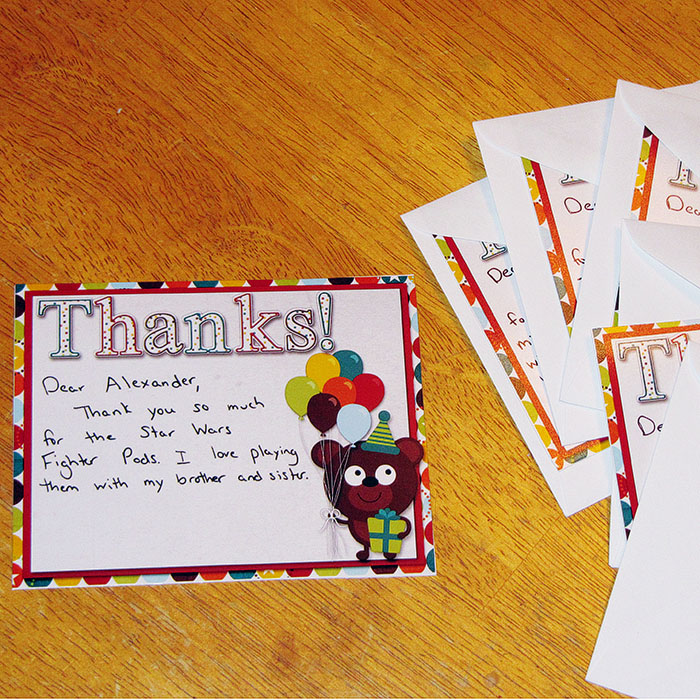 Thanks!
Dear Alexander,
Thank you so much
for the Star Wars
Fighter Pods. I love playing
them with my brother and sister.